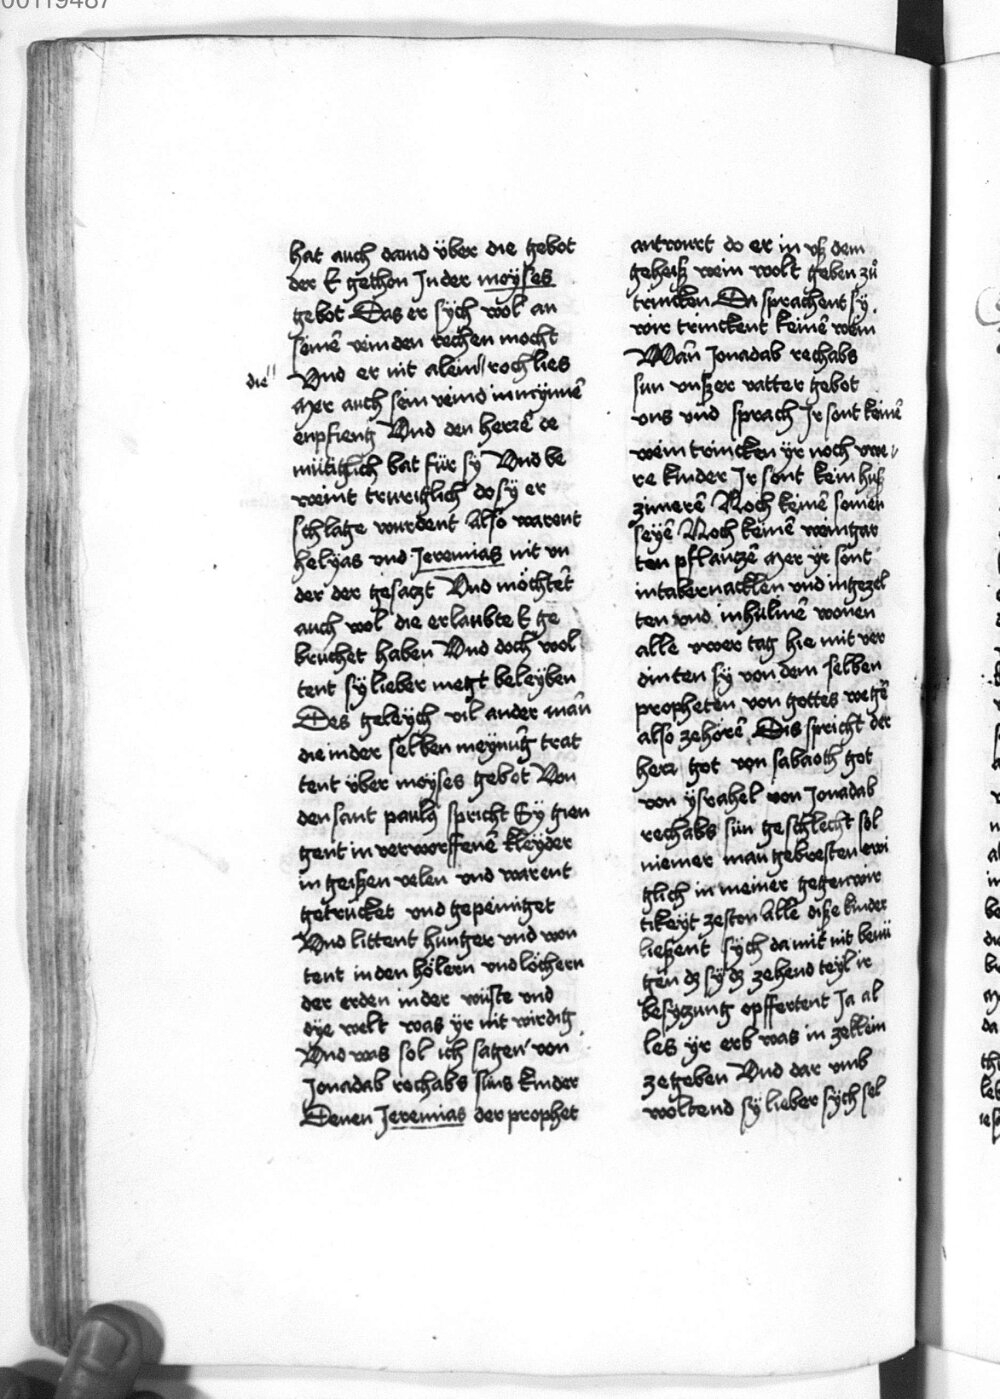 00119487
hat auch dauid über die gebot
der E gethon Jn der moyses
gebot Das er sÿch wol an
seinē veinden rechen mocht
die Vnd er nit alein roch lies
Mer auch sein veind in mÿnnē
enpfieng Vnd den herrē de
mütiglich bat für sÿ Vnd be
weint truriglich do sÿ er
schlage wurdent Also warent
helÿas vnd Jeremias nit vn
der der gesaczt Vnd möchtēt
auch wol die erlaubte E ge
bruchet haben Vnd doch wol
tent sÿ lieber megt beleÿben
Des geleÿch vil ander man̄
die in der selben meÿnūg trat
tent über moÿses gebot Von
den sant paulꝰ spricht Sÿ gien
gent in verworffenē kleÿder
in geiszen velen vnd warent
getrucket vnd gepeiniget
Vnd littent hunger vnd won
tent in den hölern vnd löchern
der erden in der wüste vnd
dÿe welt was ÿr nit wirdig
Vnd was sol ich sagen von
Jonadab rechabs suns kinder
Denen Jeremias der prophet
antwurt do er in vsz dem
geheisz wein wolt geben zů
trincken Da sprachent sÿ
wir trinckent keinē wein
Wan̄ Jonadab rechabs
sun vnszer vatter gebot
vns vnd sprach Jr sont keinē
wein trincken ÿr noch vwe
re kinder Jr sont kein husz
zimerē Noch keinē somen
seÿē Noch keinē weingar
ten pflanczē Mer ÿr sont
in tabernacklen vnd in gezel
ten vnd in hülinē wonen
alle vwer tag hie mit ver
dinten sÿ von dem selben
propheten von gottes wegē
also zehörē Dis spricht der
herr got von sabaoth got
von ÿsrahel von Jonadab
rechabs sun geschlecht sol
niemer man gebresten ewi
glich in meiner gegenwir
tikeÿt zeston Alle disze kinder
lieszent sÿch da mit nit benü
gen dz sÿ dz zehend teÿl ir
besÿczung opffertent Ja al
les ÿr erb was in zeklein
zegeben Vnd dar vmb
woltend sÿ lieber sÿch sel